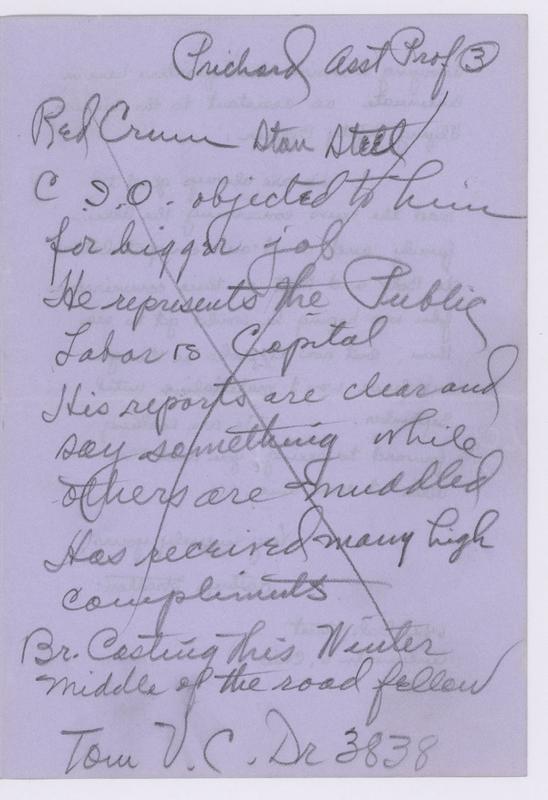 Prichard Asst Prof 3
Red Crum Stan Steel
C I.O. objected to him
for bigger job
He represents the Public
Labor vs Capital
His reports are clear and
say something while
others are muddled
Has received many high
compliments
Br. Casting this Winter
Middle of the road fellow
Tom V. C. Dr 3838